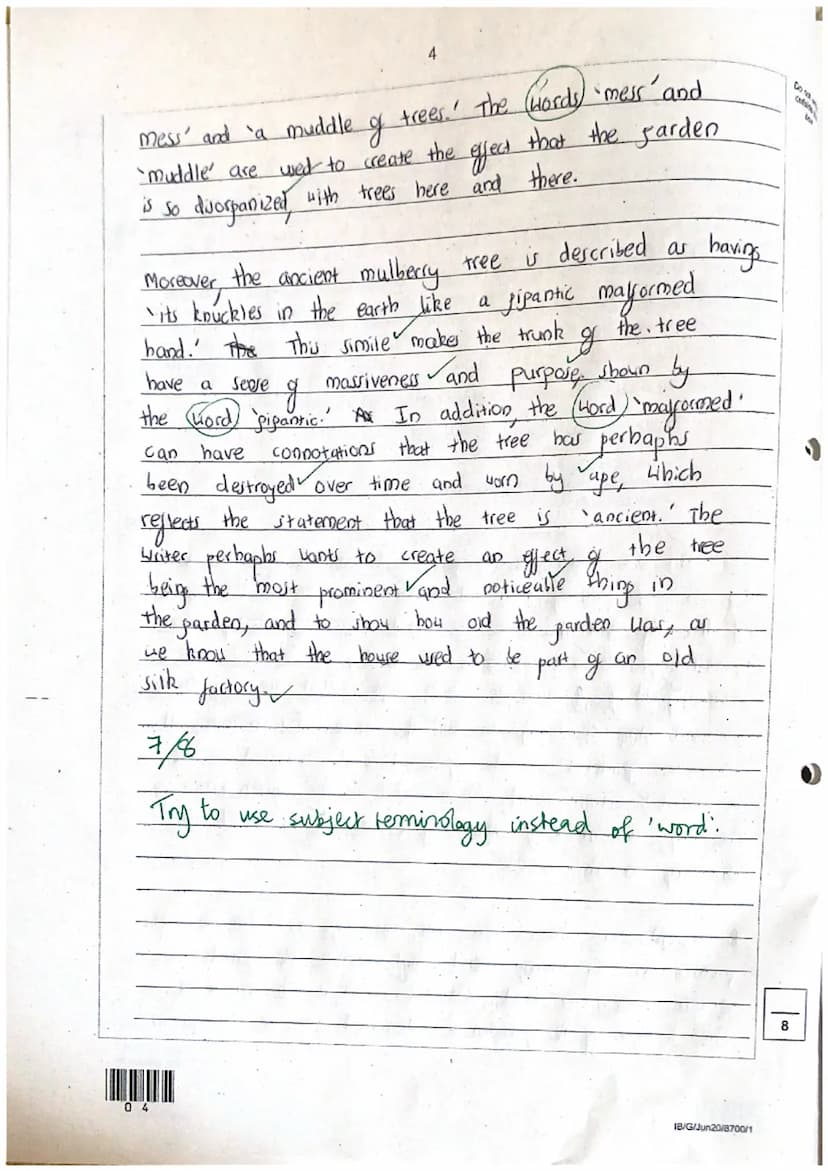 4
mess' and 'a muddle of trees.' The words 'mess' and
'muddle' are used to create the effect that the garden
is so disorganized, with trees here and there.
Moreover, the ancient mulberry tree is described as having
'its knuckles in the earth like a gigantic malformed
hand.' The This simile makes the trunk of the tree
have a sense of massiveness and purpose, shown by
the word 'gigantic.' In addition, the word 'malformed'
can have connotations that the tree has perhaphs
been destroyed over time and worn by age, which
reflects the statement that the tree is 'ancient.' The
writer perhaphs wants to create an effect of the tree
being the most prominent and noticeable thing in
the garden, and to show how old the garden was, as
we know that the house used to be part of an old
silk factory.
7/8
Try to use subject terminology instead of 'word'.
8
04
IB/G/Jun20/8700/1